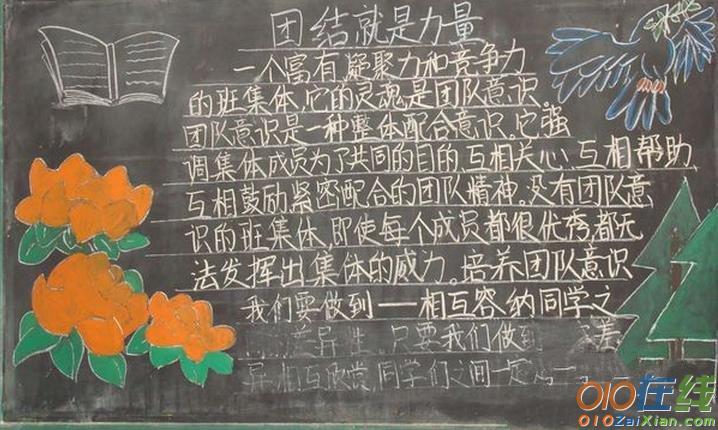 团结就是力量
一个富有凝聚力和竞争力
的班集体,它的灵魂是团队意识。
团队意识是一种整体配合意识。它强
调集体成员为了共同的目的,互相关心、互相帮助、
互相鼓励紧密配合的团队精神。没有团队意
识的班集体,即使每个成员都很优秀都无
法发挥出集体的威力。培养团队意识
我们要做到——相互容纳同学之
差异性。只要我们做到 差
异,相互欣赏,同学们之间一定
010在线
010ZaiXian.com